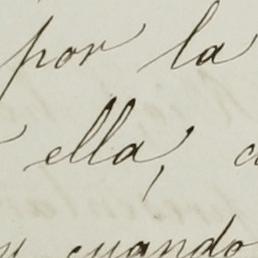 por la
ella,
y cuando